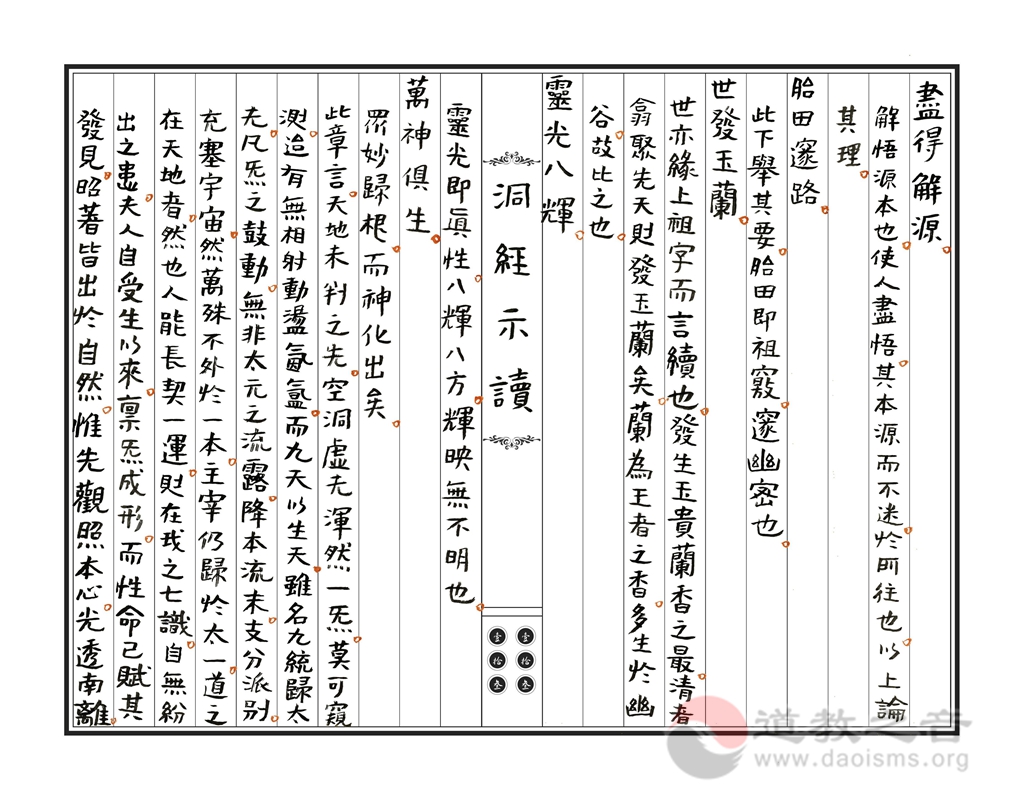 盡得解源
解悟源本也使人盡悟其本源而不迷扵所往也以上論
其理
胎田邃路
此下舉其要胎田即祖竅邃幽密也
世發玉蘭
世亦緣上祖字而言續也發生玉貴蘭香之最清者
翕聚先天則發玉蘭矣蘭為王者之香多生扵幽
谷故比之也
靈光八輝
洞經示讀
壹拾叁
壹拾叁
靈光即眞性八輝八方輝映無不明也
萬神俱生
眾妙歸根而神化出矣
此章言天地未判之先空洞虛无渾然一炁莫可窺
測迨有無相射動盪氤氳而九天以生天雖名九統歸太
无凡炁之鼓動無非太元之流露降本流末支分派别
充塞宇宙然萬殊不外扵一本主宰仍歸扵太一道之
在天地者然也人能長契一運則在我之七識自無紛
出之患夫人自受生以來禀炁成形而性命已賦其
發見昭著皆出扵自然惟先觀照本心光透南離
道教之音
www.daoisms.org